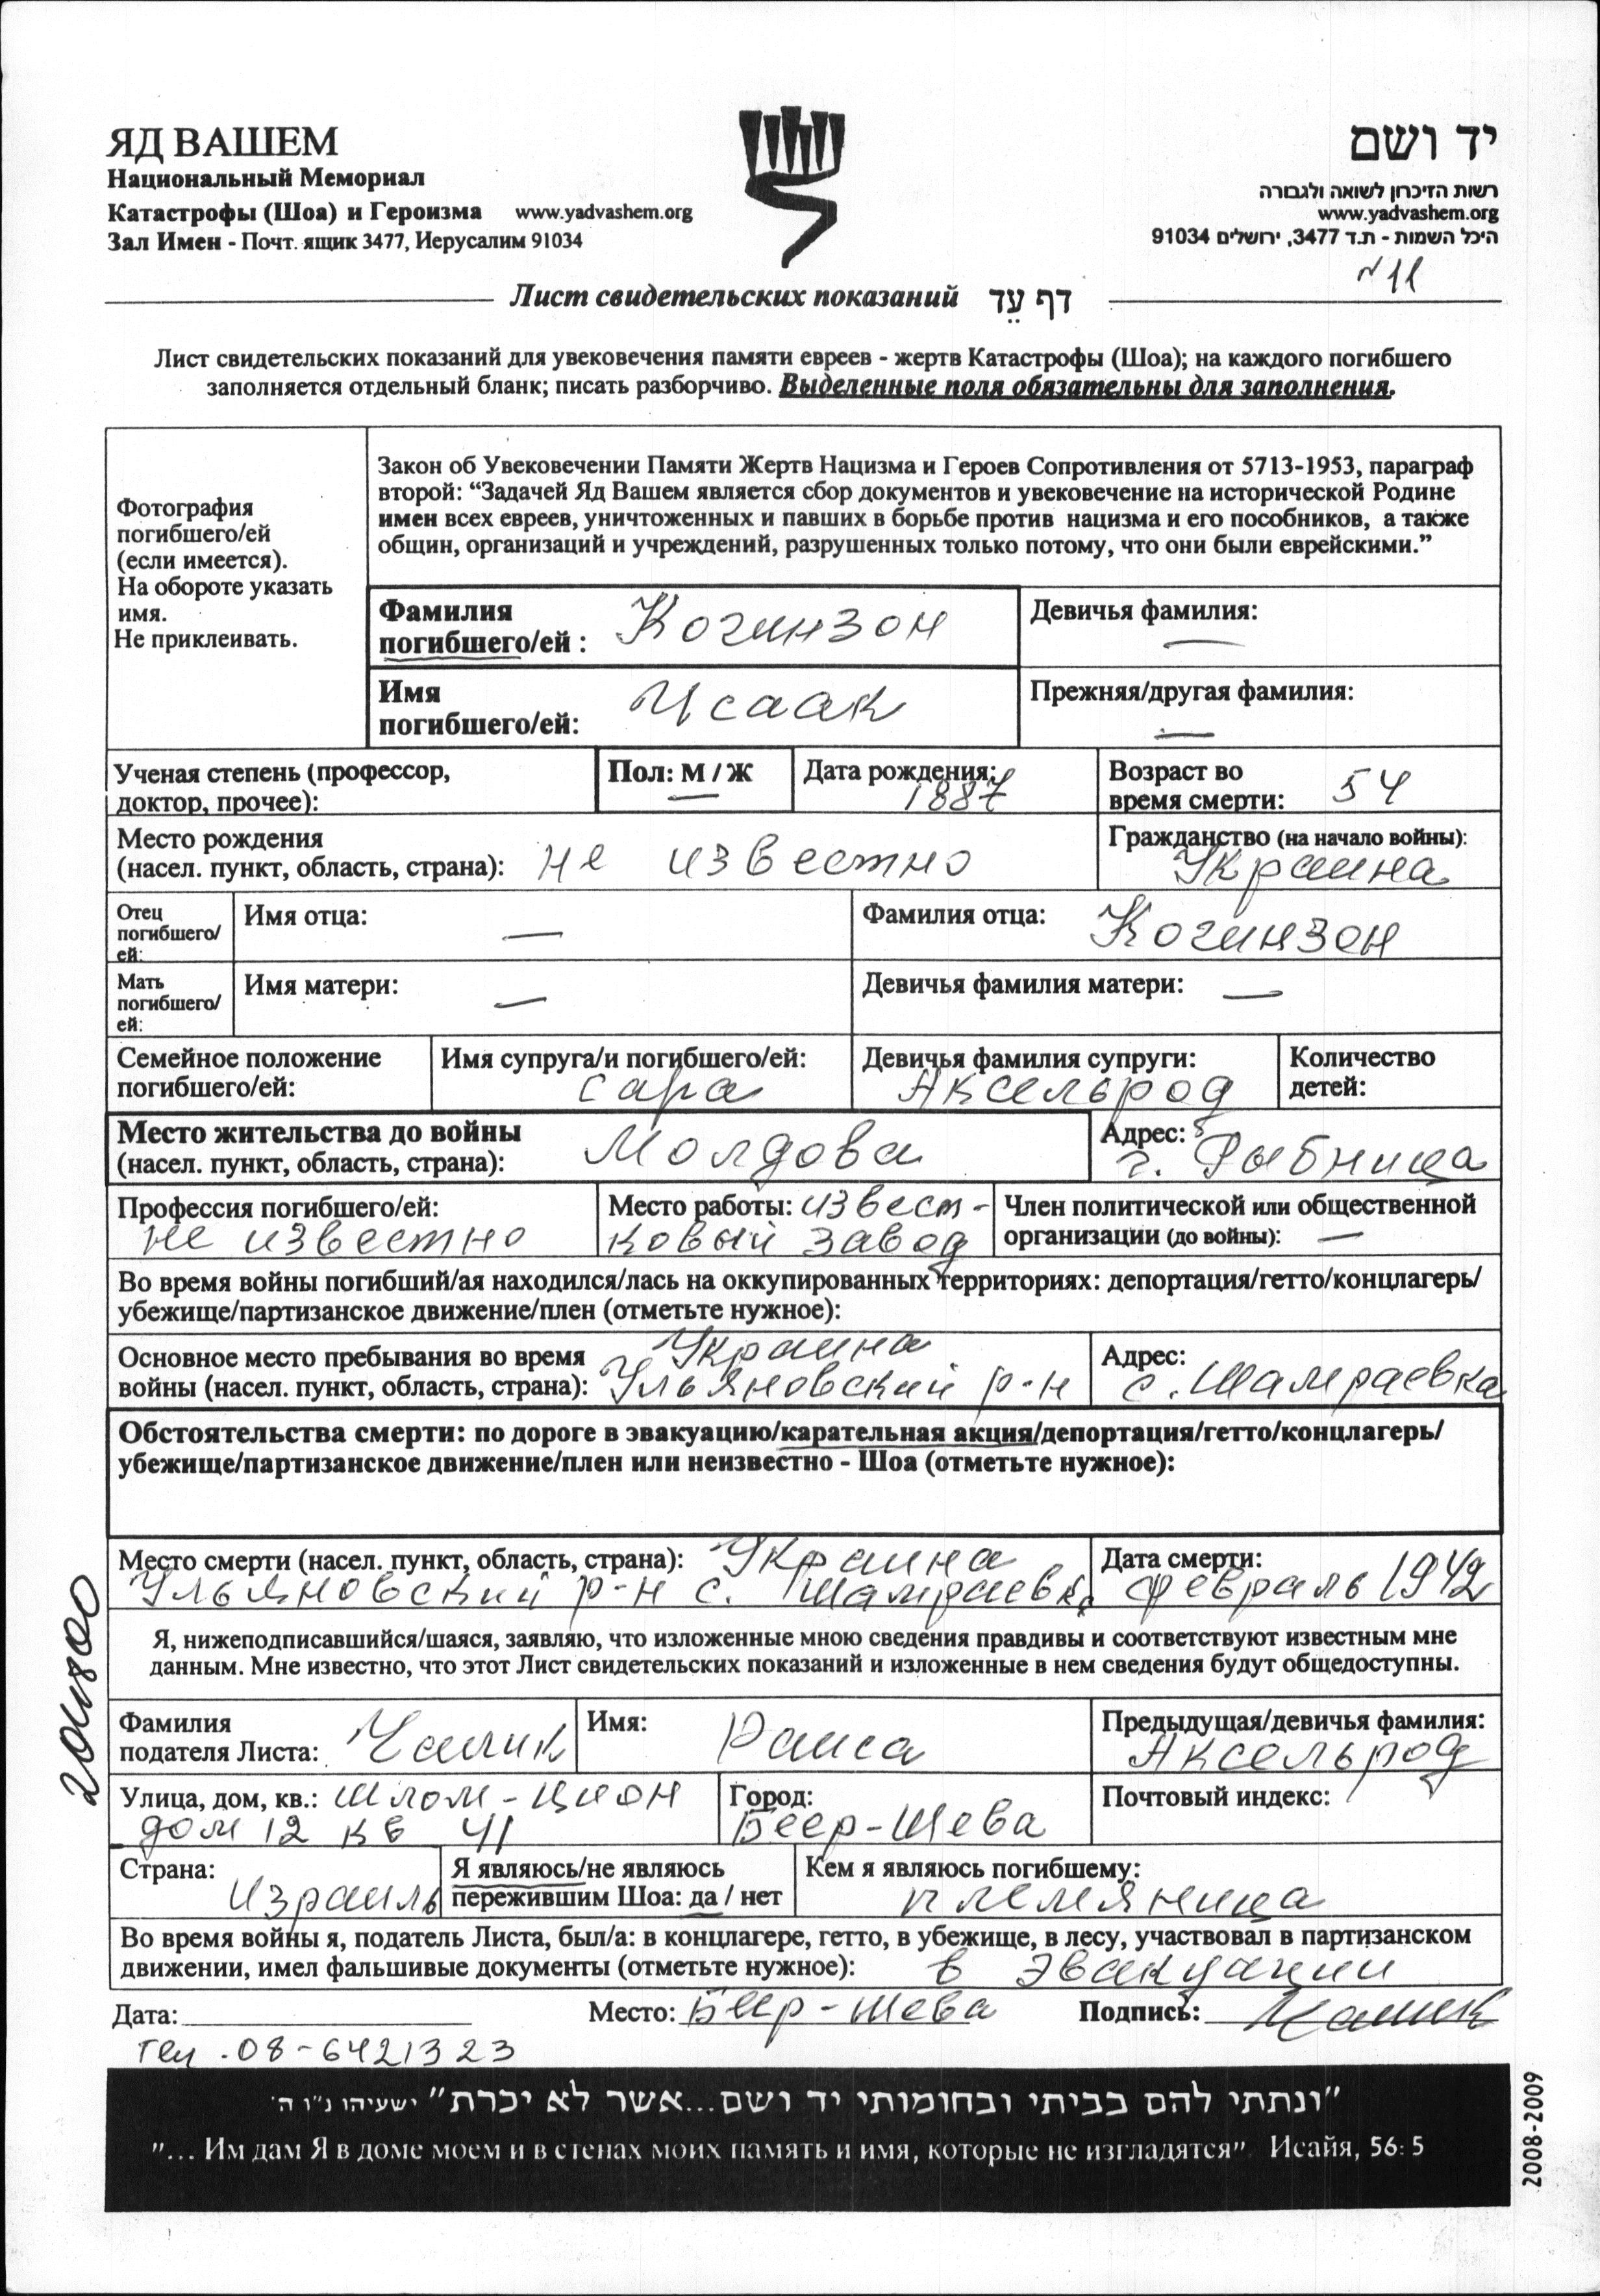 ЯД ВАШЕМ
Национальный Мемориал
Катастрофы (Шоа) и Героизма www.yadvashem.org
Зал Имен - Почт. ящик 3477, Иерусалим 91034
יד ושם
רשות הזיכרון לשואה ולגבורה
www.yadvashem.org
היכל השמות - ת.ד 3477, ירושלים 91034
№11
Лист свидетельских показаний דף עֵד
Лист свидетельских показаний для увековечения памяти евреев - жертв Катастрофы (Шоа); на каждого погибшего
заполняется отдельный бланк; писать разборчиво. Выделенные поля обязательны для заполнения.
Фотография
погибшего/ей
(если имеется).
На обороте указать
имя.
Не приклеивать.
Закон об Увековечении Памяти Жертв Нацизма и Героев Сопротивления от 5713-1953, параграф
второй: “Задачей Яд Вашем является сбор документов и увековечение на исторической Родине
имен всех евреев, уничтоженных и павших в борьбе против нацизма и его пособников, а также
общин, организаций и учреждений, разрушенных только потому, что они были еврейскими.”
Фамилия
погибшего/ей : Когинзон
Девичья фамилия:
—
Имя
погибшего/ей: Исаак
Прежняя/другая фамилия:
—
Ученая степень (профессор,
доктор, прочее):
Пол: М / Ж
Дата рождения:
1887
Возраст во
время смерти: 54
Место рождения
(насел. пункт, область, страна): не известно
Гражданство (на начало войны):
Украина
Отец
погибшего/
ей:
Имя отца: —
Фамилия отца: Когинзон
Мать
погибшего/
ей:
Имя матери: —
Девичья фамилия матери: —
Семейное положение
погибшего/ей:
Имя супруга/и погибшего/ей:
Сара
Девичья фамилия супруги:
Аксельрод
Количество
детей:
Место жительства до войны
(насел. пункт, область, страна): Молдова
Адрес:
г. Рыбница
Профессия погибшего/ей:
не известно
Место работы: извест-
ковый завод
Член политической или общественной
организации (до войны): —
Во время войны погибший/ая находился/лась на оккупированных территориях: депортация/гетто/концлагерь/
убежище/партизанское движение/плен (отметьте нужное):
Основное место пребывания во время Украина
войны (насел. пункт, область, страна): Ульяновский р-н
Адрес:
с. Шамраевка
Обстоятельства смерти: по дороге в эвакуацию/карательная акция/депортация/гетто/концлагерь/
убежище/партизанское движение/плен или неизвестно - Шоа (отметьте нужное):
Место смерти (насел. пункт, область, страна): Украина
Ульяновский р-н с. Шамраевка
Дата смерти:
февраль 1942
Я, нижеподписавшийся/шаяся, заявляю, что изложенные мною сведения правдивы и соответствуют известным мне
данным. Мне известно, что этот Лист свидетельских показаний и изложенные в нем сведения будут общедоступны.
Фамилия
подателя Листа: Чалик
Имя: Раиса
Предыдущая/девичья фамилия:
Аксельрод
Улица, дом, кв.: Шлом-Цион
дом 12 кв 41
Город:
Беер-Шева
Почтовый индекс:
Страна:
Израиль
Я являюсь/не являюсь
пережившим Шоа: да / нет
Кем я являюсь погибшему:
племяница
Во время войны я, податель Листа, был/а: в концлагере, гетто, в убежище, в лесу, участвовал в партизанском
движении, имел фальшивые документы (отметьте нужное): в эвакуации
Дата: Место: Беер-Шева Подпись:
тел. 08-6421323
"ונתתי להם בביתי ובחומותי יד ושם...אשר לא יכרת" ישעיהו נ"ו ה'
"... Им дам Я в доме моем и в стенах моих память и имя, которые не изгладятся" Исайя, 56: 5
2008-2009